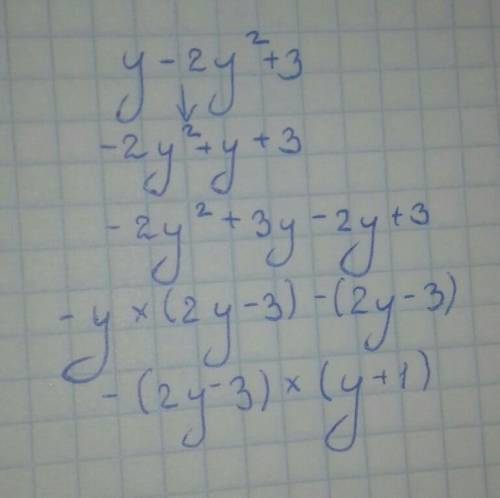 y - 2y² + 3
↓
-2y² + y + 3
-2y² + 3y - 2y + 3
-y × (2y - 3) - (2y - 3)
-(2y - 3) × (y + 1)